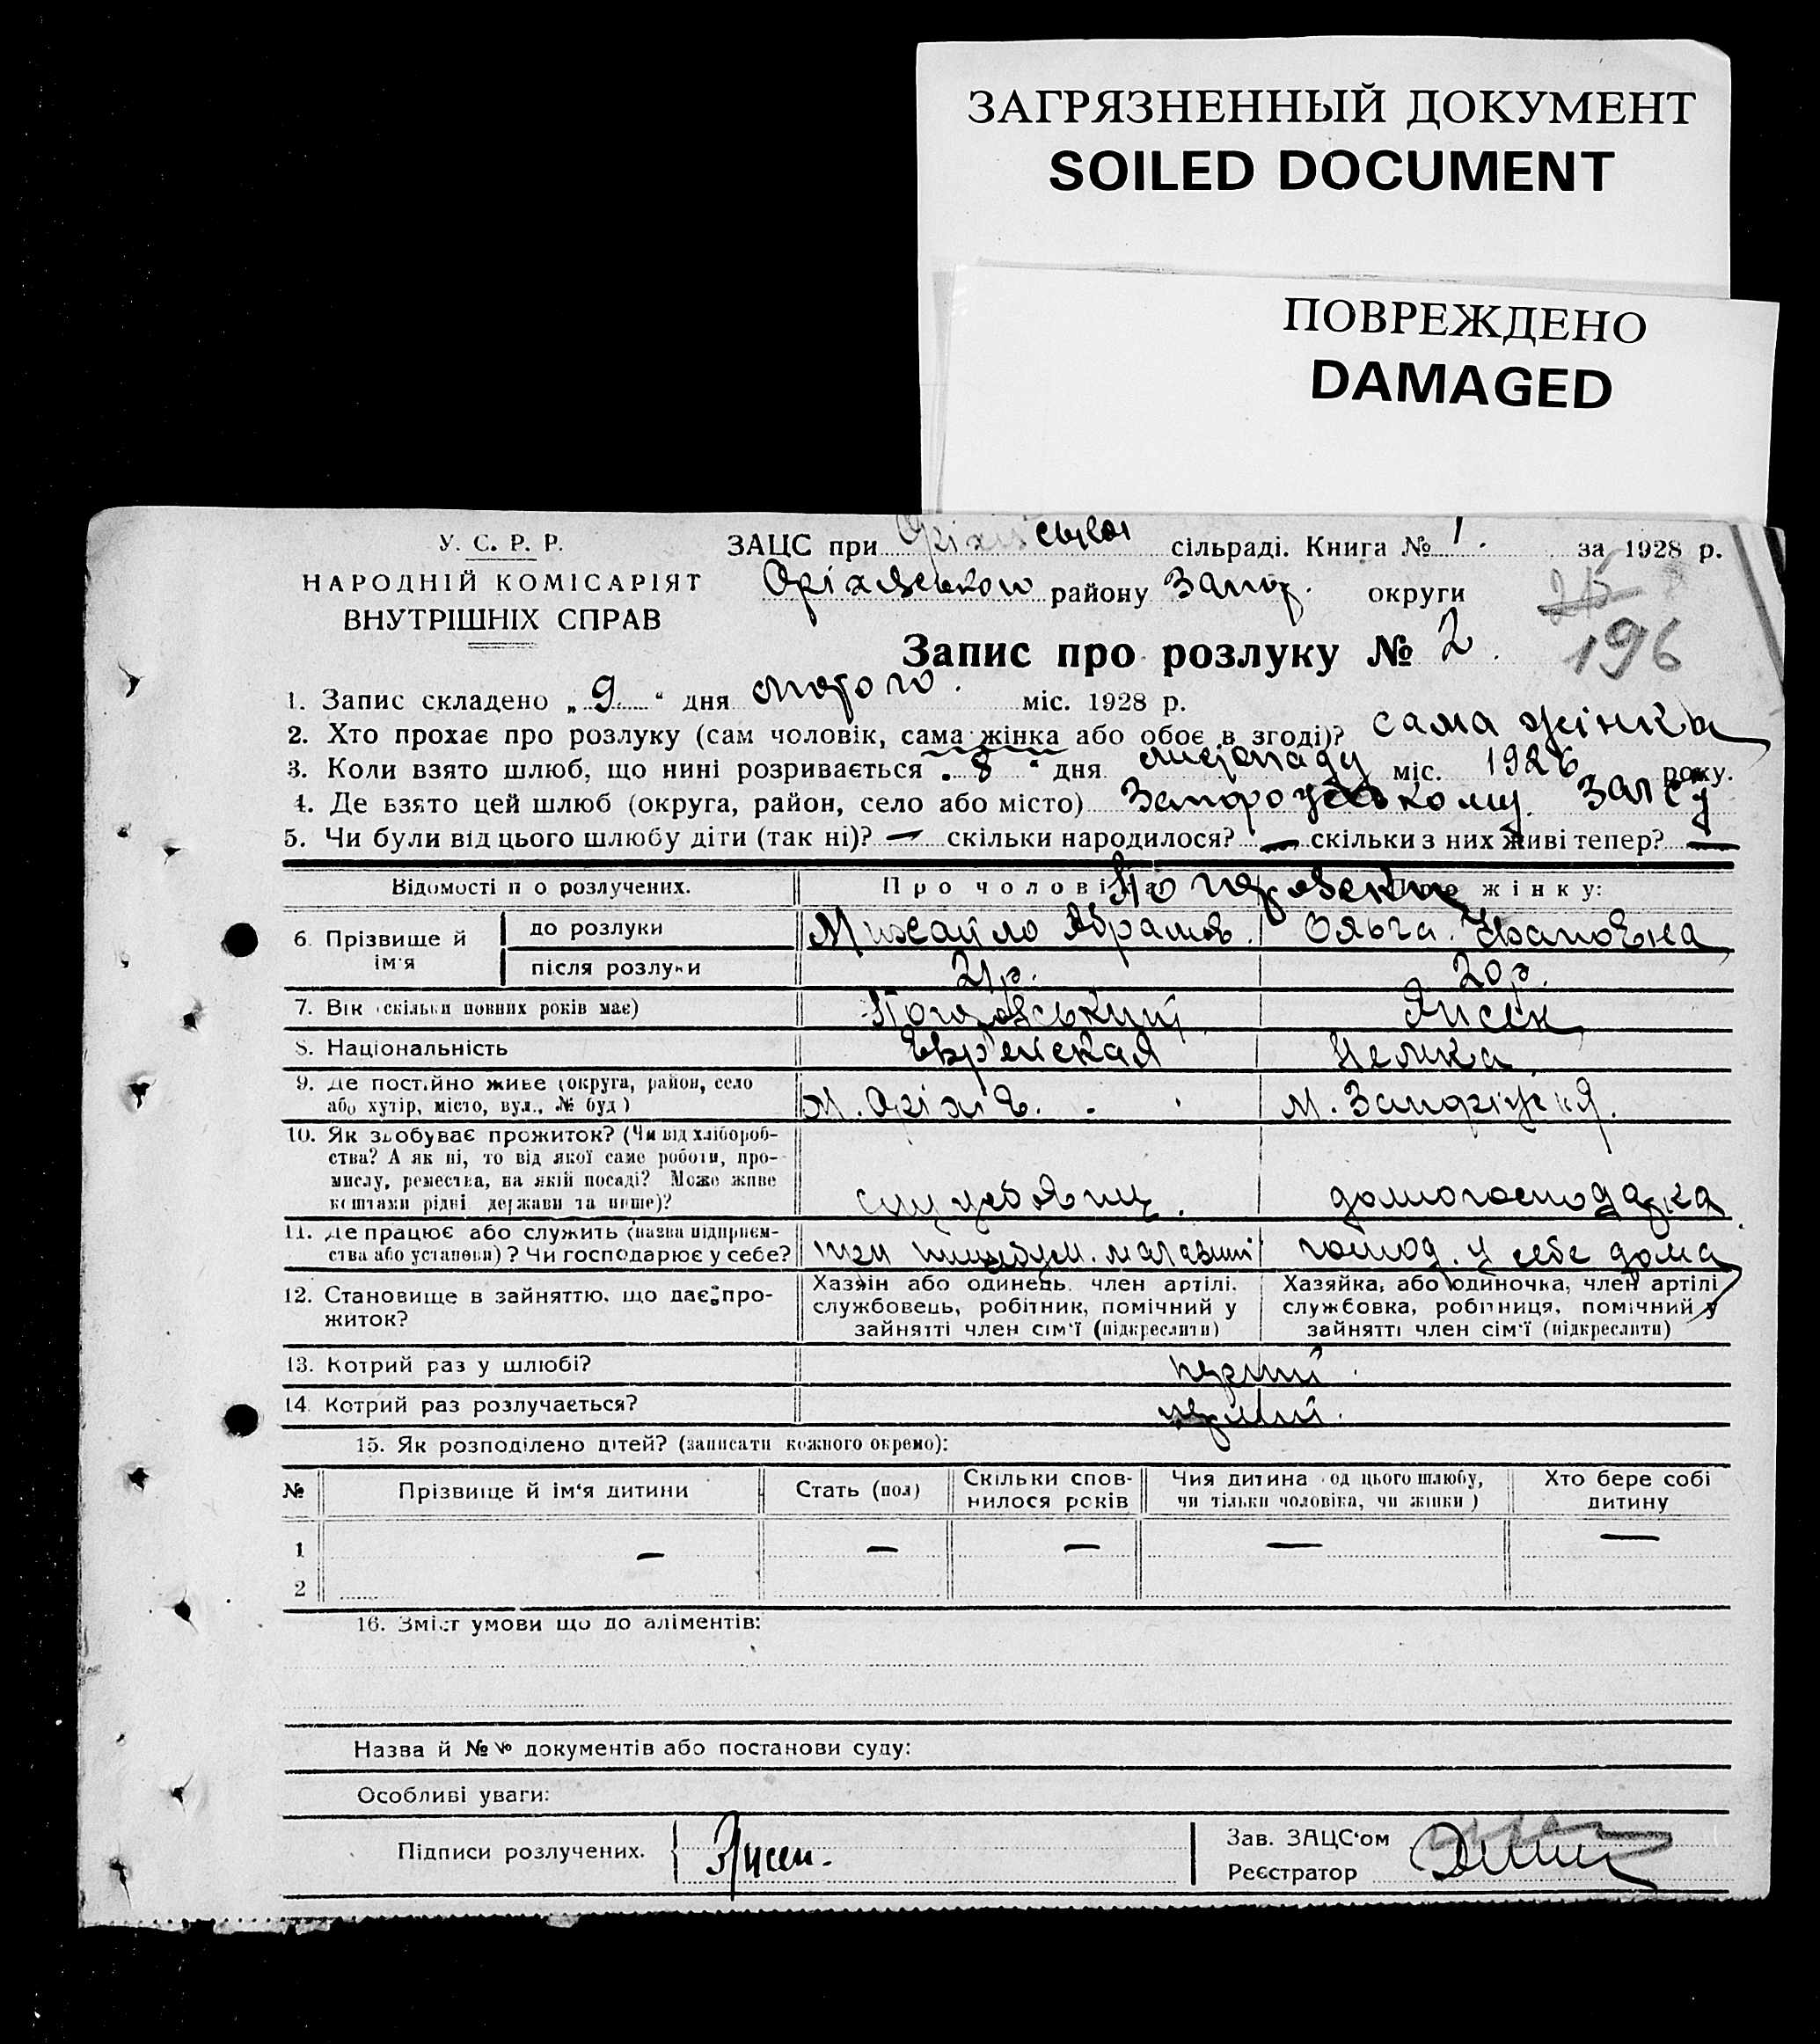 ЗАГРЯЗНЕННЫЙ ДОКУМЕНТ
SOILED DOCUMENT
ПОВРЕЖДЕНО
DAMAGED
У. С. Р. Р.
НАРОДНІЙ КОМІСАРІЯТ
ВНУТРІШНІХ СПРАВ
ЗАЦС при Оріхівській сільраді. Книга № 1. за 1928 р.
Оріхівського району Запор. округи
25
196
Запис про розлуку № 2.
1. Запис складено „ 9 “ дня лютого. міс. 1928 р.
2. Хто прохає про розлуку (сам чоловік, сама жінка або обоє в згоді)? сама жінка
3. Коли взято шлюб, що нині розривається „ 8 “ дня листопаду міс. 1926 року.
4. Де взято цей шлюб (округа, район, село або місто) Запорозькому Загсу
5. Чи були від цього шлюбу діти (так ні)? — скільки народилося? — скільки з них живі тепер? —
Відомості п о розлучених. Про чоловіка жінку:
6. Прізвище й ім'я до розлуки Михайло Абрамов. Ольга Івановна
після розлуки 21 р. 20 р.
7. Вік (скільки повних років має) Янсен
8. Національність Еврейская Немка
9. Де постійно живе (округа, район, село або хутір, місто, вул., № буд) м. Оріхів. м.
10. Як здобуває прожиток? (Чи від хлібороб-
ства? А як ні, то від якої саме роботи, про-
мислу, ремества, на якій посаді? Може живе
коштами рідні держави та инше)? домогосподарка
11. Де працює або служить (назва підприєм-
ства або установи)? Чи господарює у себе? магазині господ. у себе дома
12. Становище в зайняттю, що дає про-
житок?
Хазяїн або одинець, член артілі,
службовець, робітник, помічний у
зайнятті член сім'ї (підкреслити)
Хазяйка, або одиночка, член артілі
службовка, робітниця, помічний у
зайнятті член сім'ї (підкреслити)
13. Котрий раз у шлюбі? перший
14. Котрий раз розлучається? перший.
15. Як розподілено дітей? (записати кожного окремо):
№ Прізвище й ім'я дитини Стать (пол) Скільки спов-
нилося років Чия дитина (од цього шлюбу,
чи тільки чоловіка, чи жінки) Хто бере собі
дитину
1 — — — — —
2
16. Зміст умови що до аліментів:
Назва й №№ документів або постанови суду:
Особливі уваги:
Підписи розлучених. Янсен.
Зав. ЗАЦС'ом
Реєстратор